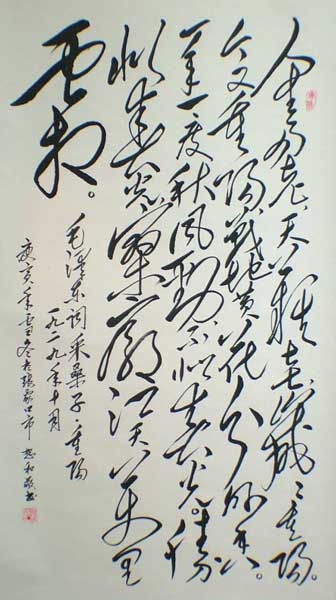 人生易老天难老岁々重阳。
今又重阳战地黄花分外香。
一年一度秋风劲不似春光。胜
似春光寥廓江天万里
霜。
毛泽东词采桑子·重阳
一九二九年十月
张家口市